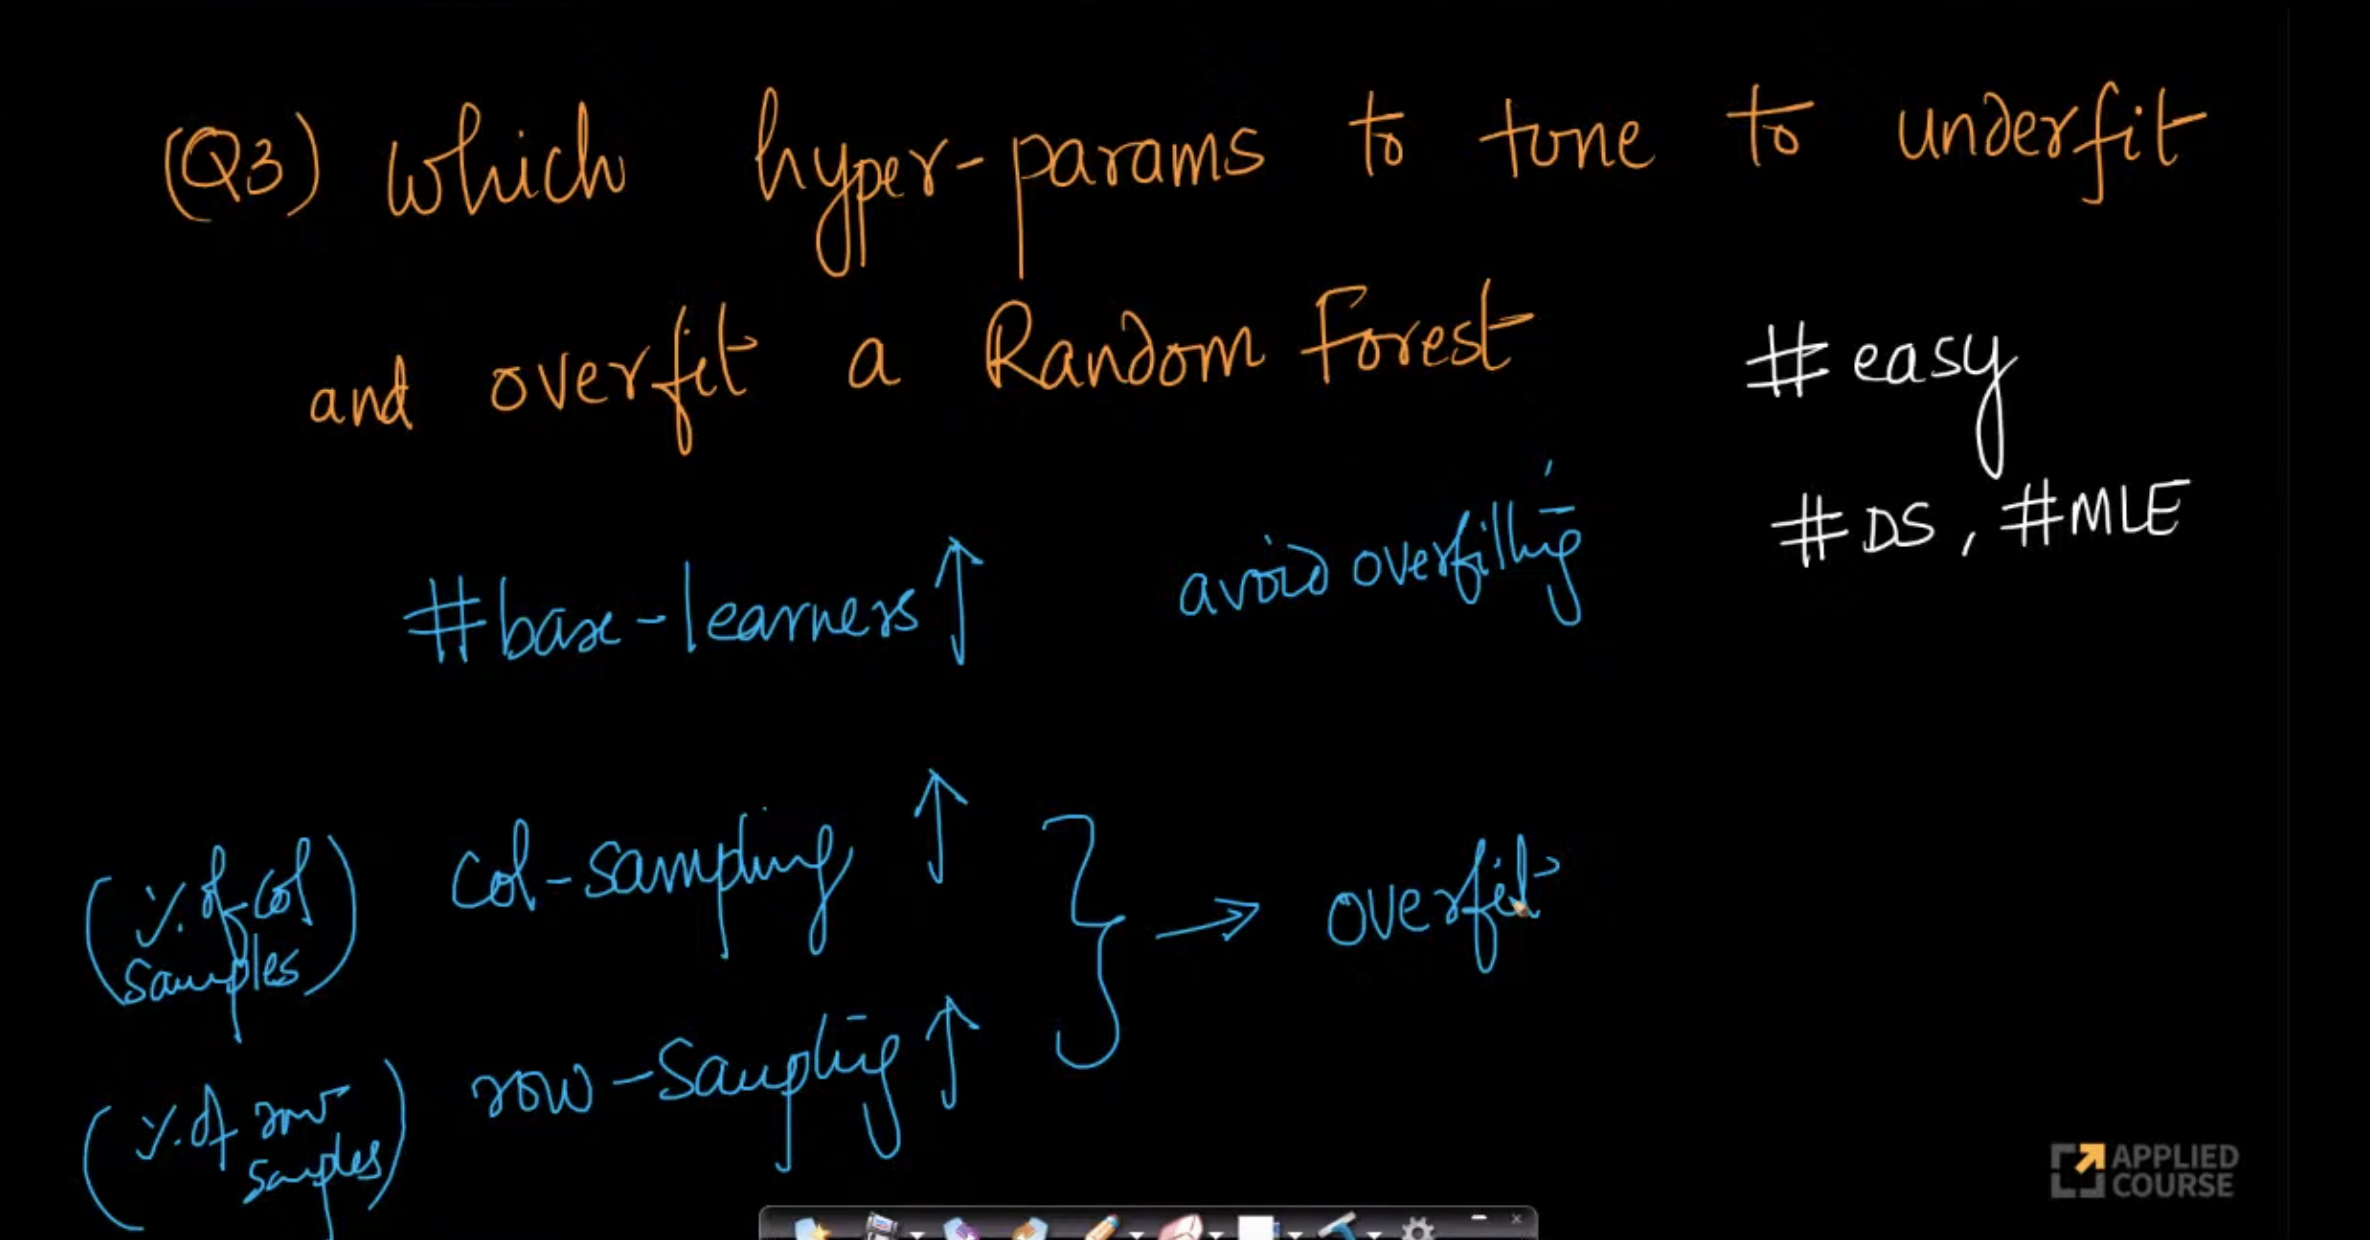 (Q3) Which hyper-params to tune to underfit
and overfit a Random Forest
#easy
#DS, #MLE
#base-learners ↑ avoid overfitting
(% of col samples) col-sampling ↑
→ overfit
(% of row samples) row-sampling ↑
APPLIED
COURSE